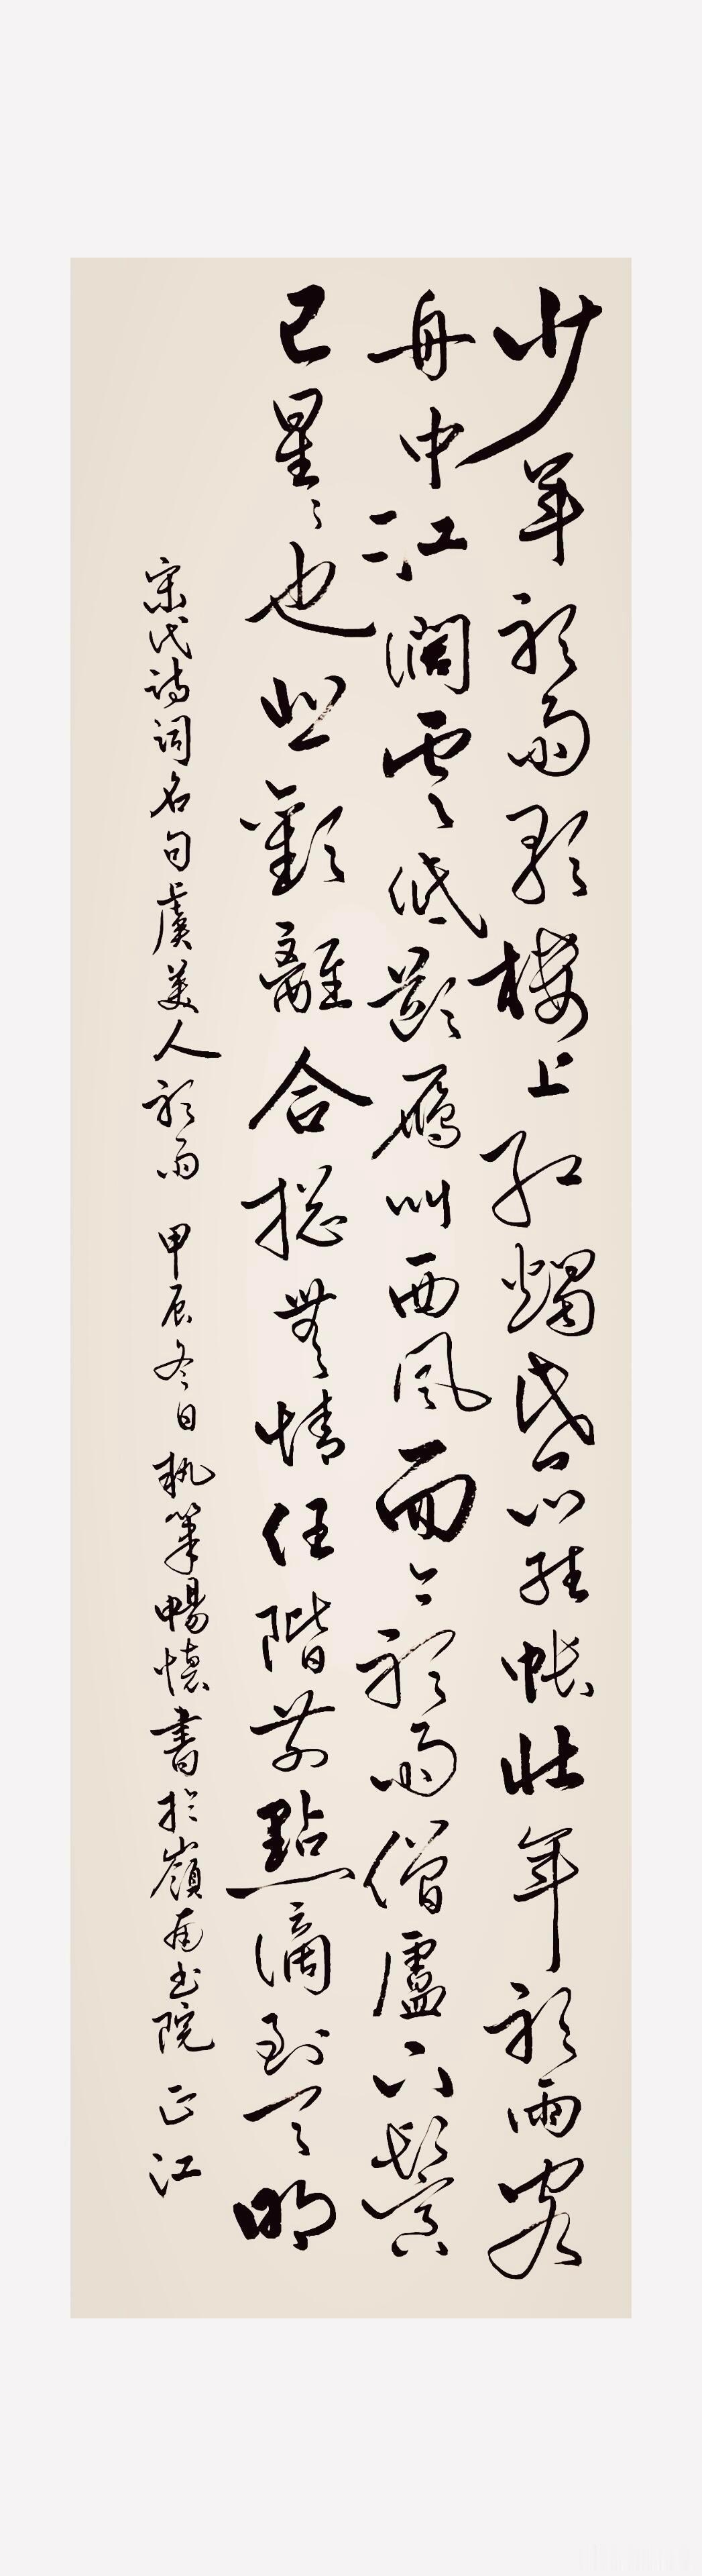 少年聽雨歌樓上紅燭昏羅帳壯年聽雨客
舟中江濶雲低斷雁叫西風而今聽雨僧廬下鬢
已星々也悲歡離合總無情任階前點滴到天明
宋代詩詞名句虞美人聽雨 甲辰冬日執筆暢懷書於嶺南书院 正江